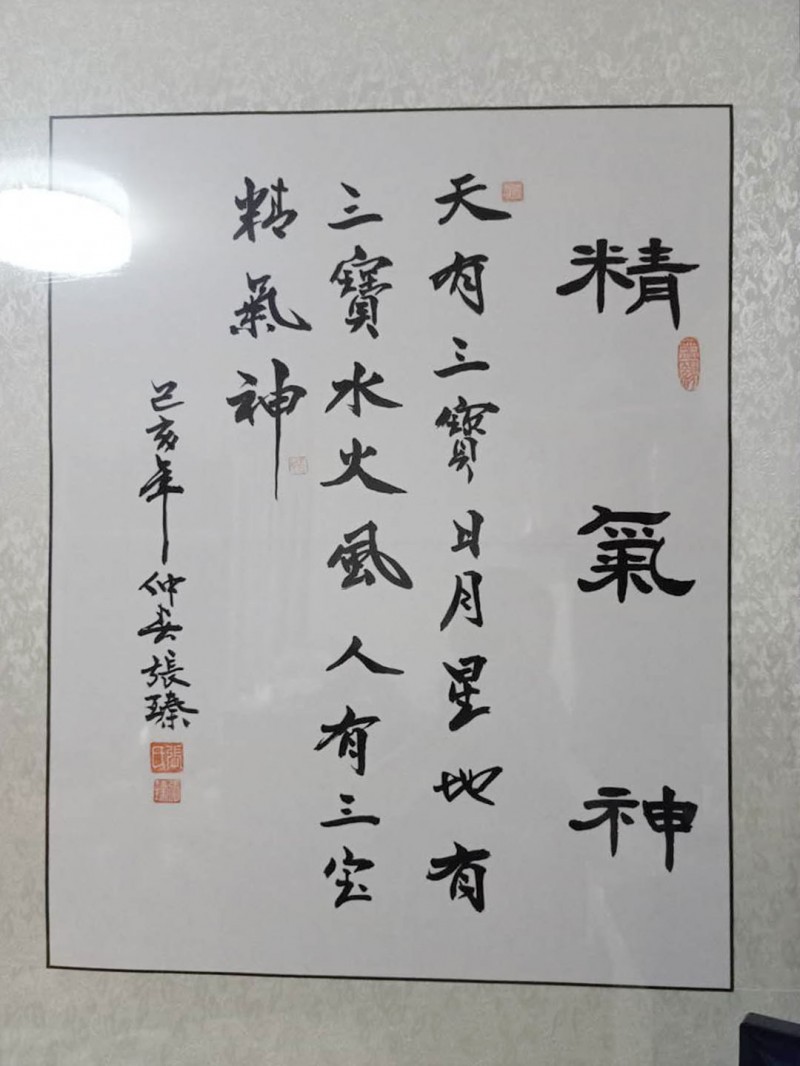 精氣神
天有三寶日月星地有
三寶水火風人有三宝
精氣神
己亥年仲春張瑧
張氏